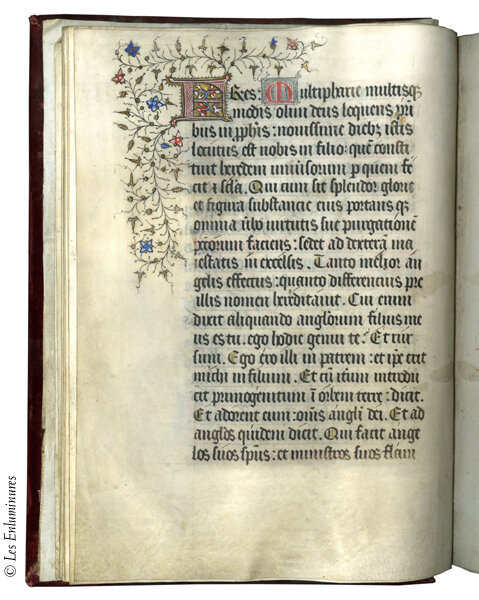 FRes: Multipharie multisqꝫ
modis olim deus loquens pr̄i
bus in ꝓph̄is: nouissime diebꝫ istis
locutus est nobis in filio: quē consti
tuit heredem uniūsorum ꝑ quem fe
cit ⁊ scl̄a. Qui cum sit splendor glorie
et figura substancie eius portans qꝫ
omnia ūbo uirtutis sue purgationē
pctōrum faciens: sedet ad dexterā ma
iestatis in excelsis. Tanto melior an
gelis effectus: quanto differencius pre
illis nomen hereditauit. Cui enim
dixit aliquando angl̄orum filius me
us es tu. ego hodie genui te. Et rur
sum. Ego ero illi in patrem: et ip̄e erit
michi in filium. Et cū it̄um introdu
cit primogenitum ī orbem terre: dicit.
Et adorent eum: om̄s angl̄i dei. Et ad
angl̄os quidem dicit. Qui facit ange
los suos sp̄us: et ministros suos flam
© Les Enluminures